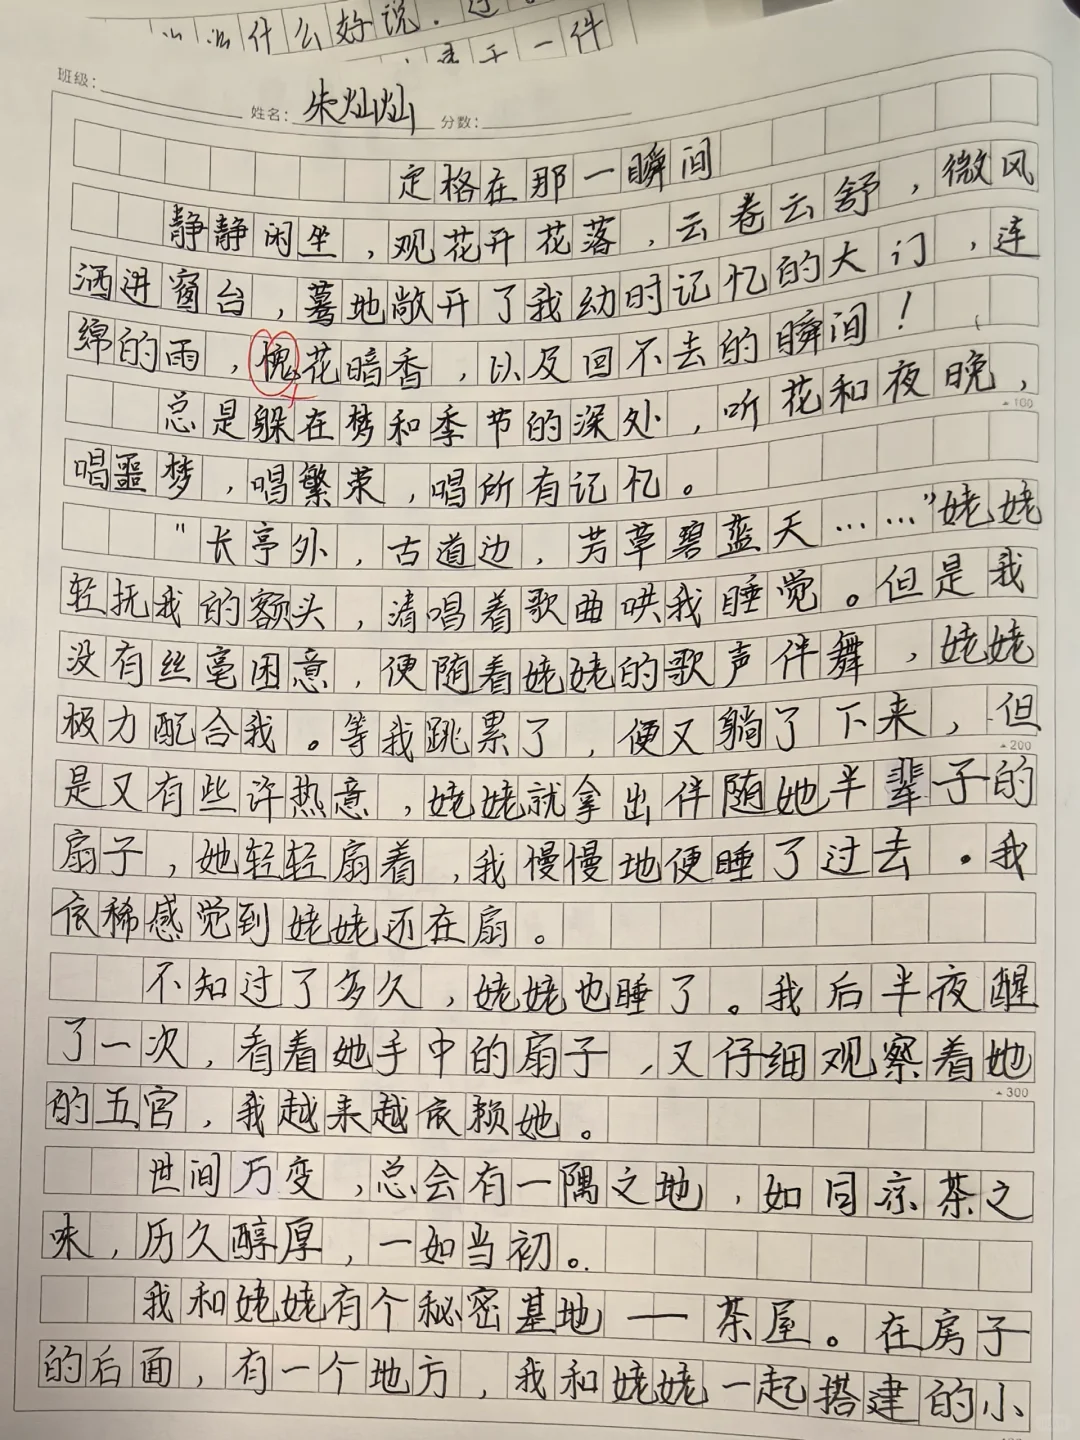 什么好说.过
于一件
班级:
姓名: 朱灿灿 分数:
定格在那一瞬间
静静闲坐，观花开花落，云卷云舒，微风
洒进窗台，蓦地敞开了我幼时记忆的大门，连
绵的雨，槐花暗香，以及回不去的瞬间！
总是躲在梦和季节的深处，听花和夜晚，
▲100
唱噩梦，唱繁荣，唱所有记忆。
"长亭外，古道边，芳草碧蓝天……"姥姥
轻抚我的额头，清唱着歌曲哄我睡觉。但是我
没有丝毫困意，便随着姥姥的歌声伴舞，姥姥
极力配合我。等我跳累了，便又躺了下来，但
▲200
是又有些许热意，姥姥就拿出伴随她半辈子的
扇子，她轻轻扇着，我慢慢地便睡了过去。我
依稀感觉到姥姥还在扇。
不知过了多久，姥姥也睡了。我后半夜醒
了一次，看着她手中的扇子，又仔细观察着她
▲300
的五官，我越来越依赖她。
世间万变，总会有一隅之地，如同凉茶之
味，历久醇厚，一如当初。
我和姥姥有个秘密基地——茶屋。在房子
的后面，有一个地方，我和姥姥一起搭建的小